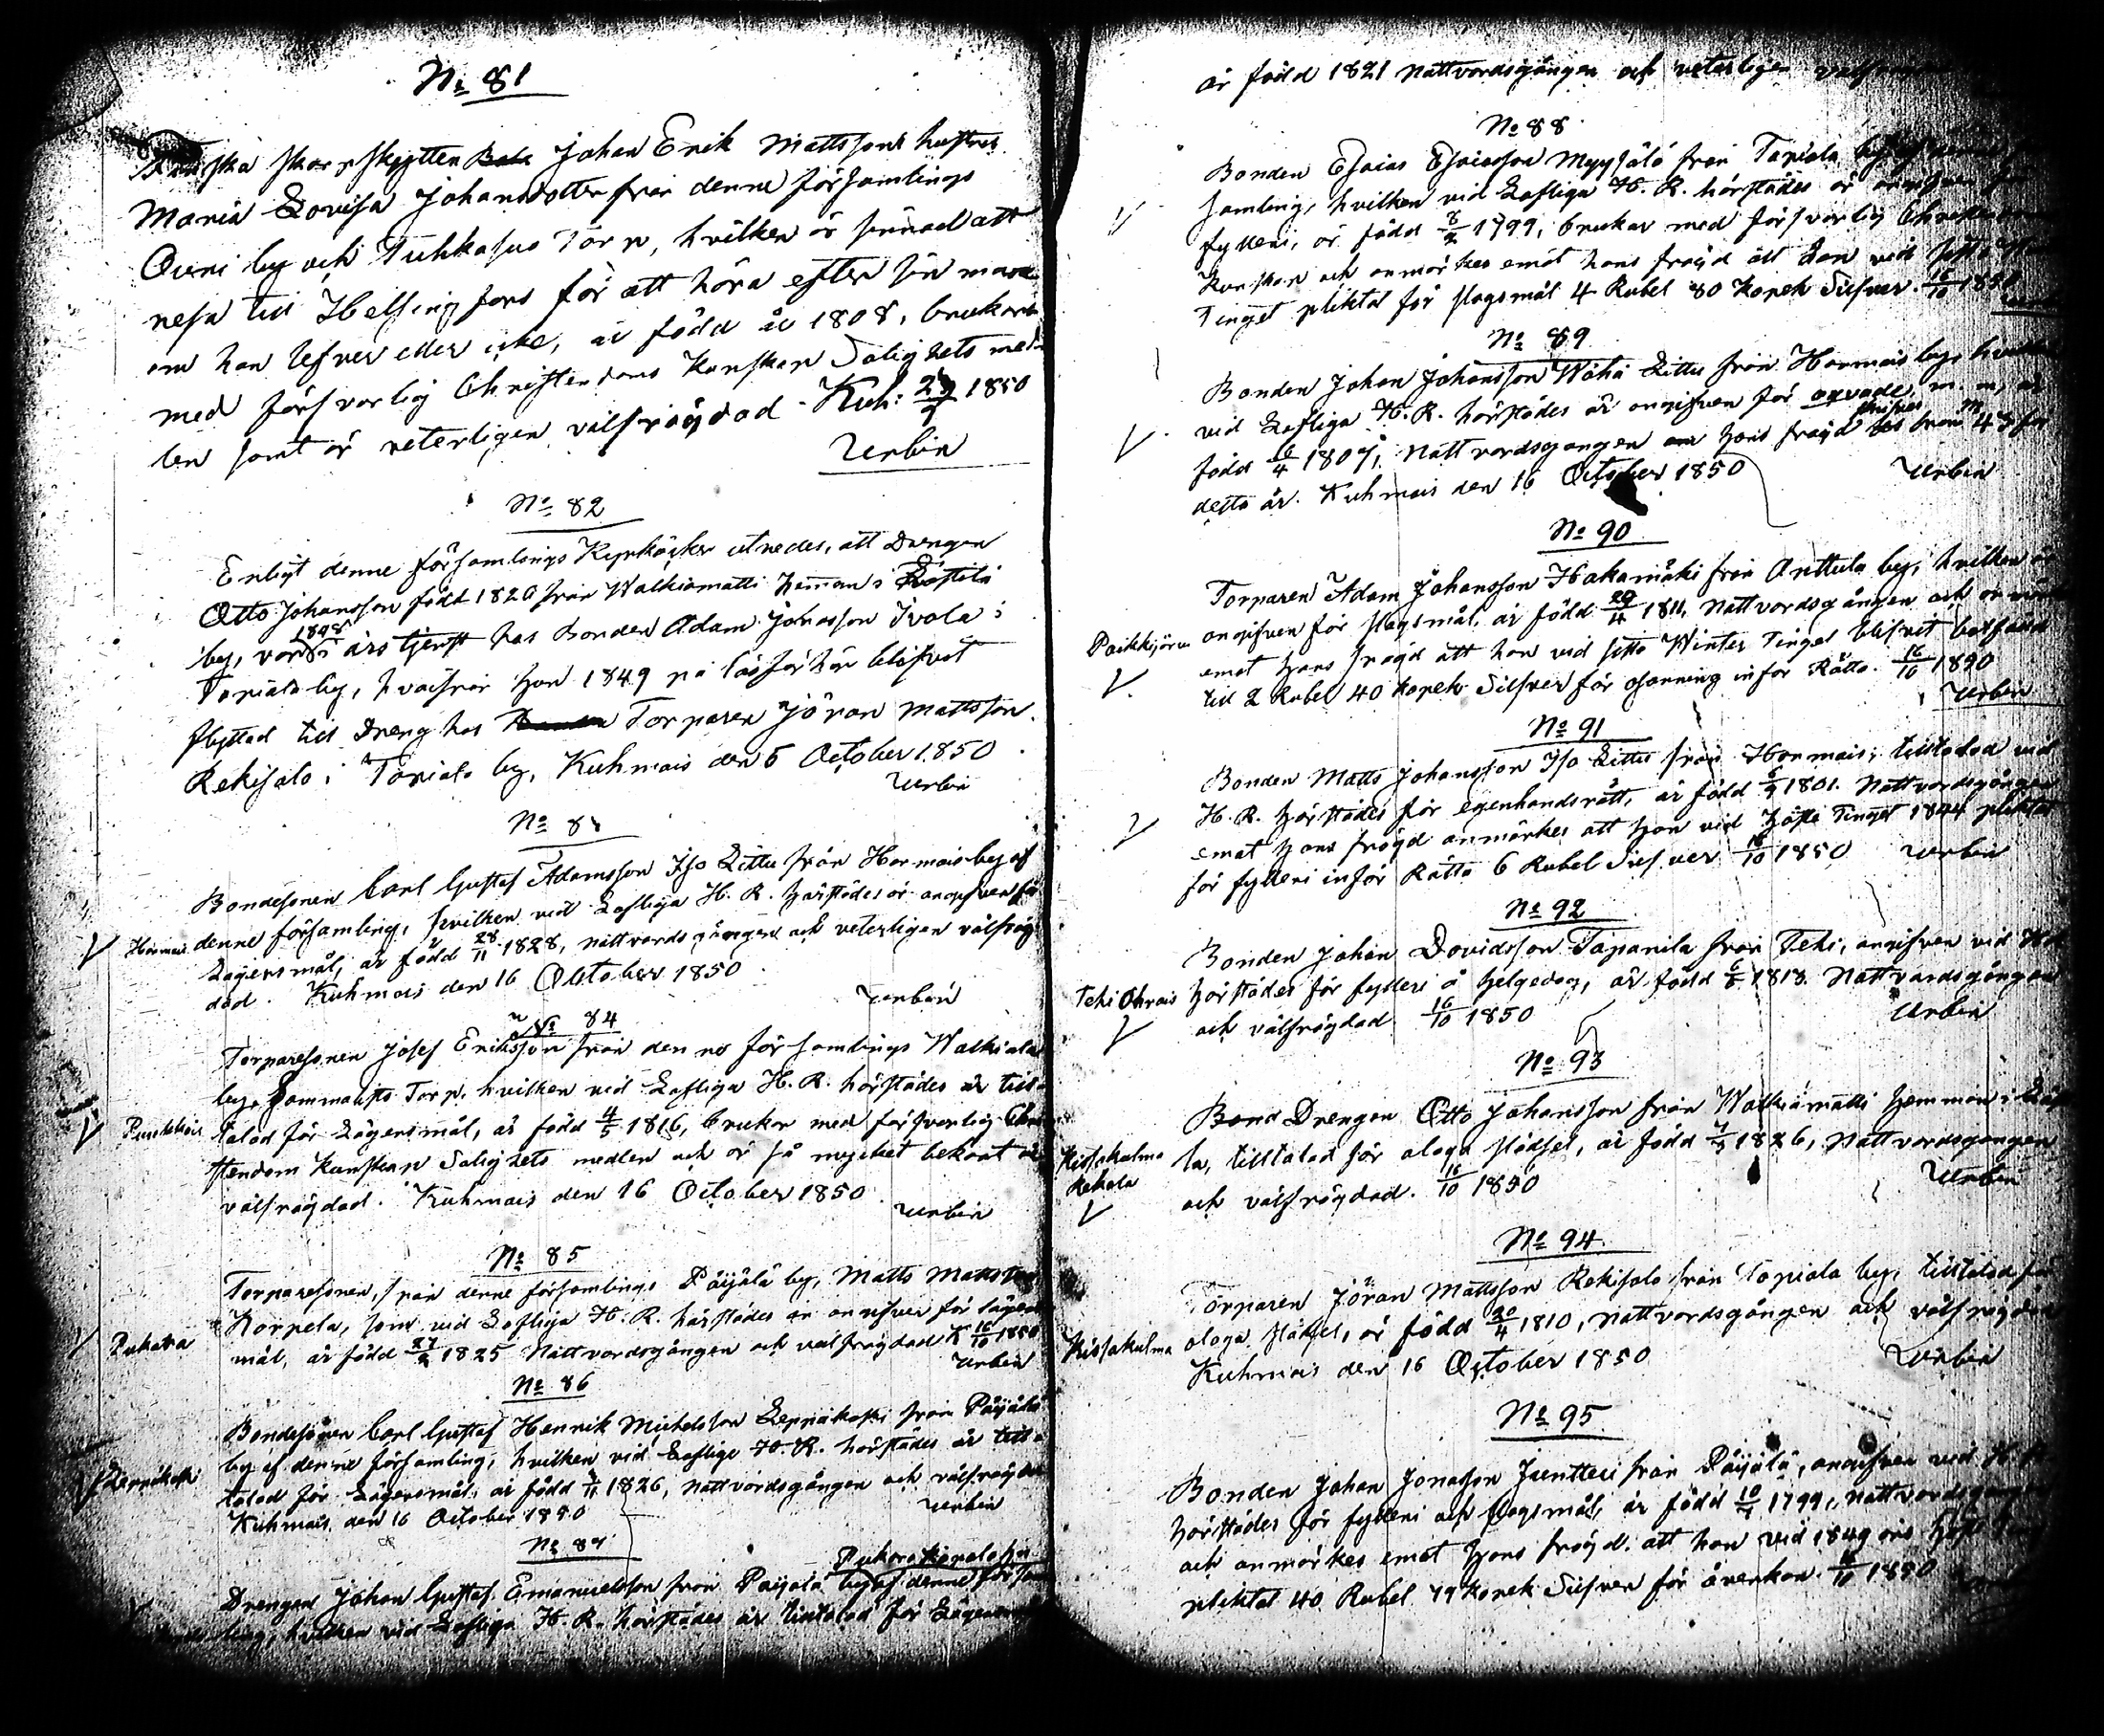 N:o 81
Finska skarpskytten Johan Erik Mattssons hustru
Maria Lovisa Johansdotter från denne församlings
Ouri by och Tuhkasuo Torp, hvilken är sinnad att
resa till Helsingfors för att höra efter sin man
om han lefver eller icke, är född år 1808, brukar
med försvarlig Christendoms Kunskap Salighets med-
len samt är veterligen välfrägdad. Kuh: 1850
Urbin
N:o 82
Enligt denne församlings Kyrkböcker utredes, att Drengen
Otto Johansson född 1826 från Walkiamatti heman i
by, varit 1848 års tjenst hos Bonden Adam Johansson Ivola i
Tapiala by, hvarifrån han 1849 på läsförhör blifvit
flyttad till Dreng hos Torparen Jöran Mattsson
Rekisalo i Tapiala by, Kuhmois den 5 October 1850
Urbin
N:o 8
Bondesonen Carl Gustaf Adamsson Iso Littu från Harmois by af
Harmois denne församling, hvilken vid Lofliga H. R. härstädes är angifven för
Lägersmål, är född 28/11 1828, nattvardsgången och veterligen välfräg
dad. Kuhmois den 16 October 1850
Urbin
N:o 84
Torparesonen Josef Eriksson från denna församlings Walkiala
by, Torp, hvilken vid Lofliga H. R. härstädes är till-
talad för Lägersmål, är född 4/5 1816, brukar med försvarlig Chri
stendoms Kunskap Salighets medlen och är så mycket bekant är
välfrägdad. Kuhmois den 16 October 1850
Urbin
N:o 85
Torparesonen, från denne församlings Päijälä by, Matts Mattsson
Korpela, som vid Lofliga H. R. härstädes är angifven för Lägers
Pukara mål, är född 27/2 1825 Nattvardsgången och välfrägdad K 16/10 1850
Urbin
N:o 86
Bondesonen Carl Gustaf Henrik Michelsson Leppäkoski från Päijälä
by af denne församling, hvilken vid Lofliga H. R. härstädes är till-
Leppäkoski talad för Lägersmål, är född 1826, nattvardsgången och välfrägdad
Kuhmois, den 16 October 1850
Urbin
N:o 87
Drengen Johan Gustaf Emanuelsson från Päijälä by af denne försam
ling, hvilken vid Lofliga H. R. härstädes är tilltalad för Lägersmål
är född 1821 nattvardsgången och veterligen
N:o 88
Bonden Esaias Esaiasson Myysälä från Tapiala
samling, hvilken vid Lofliga H. R. härstädes är angifven för
fylleri, är född 8/2 1799, brukar med försvarlig Christendoms
Kunskap och anmärkes emot hans frägd att han vid sista
Tinget pliktat för slagsmål 4 Rubel 80 Kopek Silfver. 16/10 1850
N:o 89
Bonden Johan Johansson Wähä Littu från Harmois by, hvilken
vid Lofliga H. R. härstädes är angifven för m. m, är
född 1807, Nattvardsgången hans frägd
detta år. Kuhmois den 16 October 1850
Urbin
N:o 90
Torparen Adam Johansson Hakamäki från Anttula by, hvilken är
angifven för slagsmål, är född 29/4 1811, nattvardsgången och är
emot hans frägd att han vid sista Winter Tinget blifvit botfäld
till 2 Rubel 40 Kopek Silfver för osanning inför Rätta. 16/10 1850
Urbin
N:o 91
Bonden Matts Johansson Iso Littu från Harmois, tilltalad vid
H. R. härstädes för egenhandsrätt, är född 1801. Nattvardsgången
emot hans frägd anmärkes att han vid Höste Tinget 1844 pliktat
för fylleri inför Rätta 6 Rubel Silfver 16/10 1850
Urbin
N:o 92
Bonden Johan Davidsson Tapanila från Tehi, angifven vid H. R.
Tehi härstädes för fylleri å helgedag, är född 1813. Nattvardsgången
och välfrägdad 16/10 1850
Urbin
N:o 93
Bond Drengen Otto Johansson från Walkiamatti hemman i
la, tilltalad för olaga flådsel, är född 1826, Nattvardsgången
Kissakulma
Kekola
och välfrägdad. 16/10 1850
Urbin
N:o 94
Torparen Jöran Mattsson Rekisalo från Tapiala by, tilltalad för
Kissakulma olaga flådsel, är född 20/4 1810, nattvardsgången och välfrägdad
Kuhmois den 16 October 1850
Urbin
N:o 95
Bonden Johan Jonasson Juntteri från Päijälä, angifven vid H. R.
härstädes för fylleri och slagsmål, är född 1799, nattvardsgången
och anmärkes emot hans frägd, att han vid 1849 års Höst
pliktat 40 Rubel 79 Kopek Silfver för åverkan. 16/10 1850